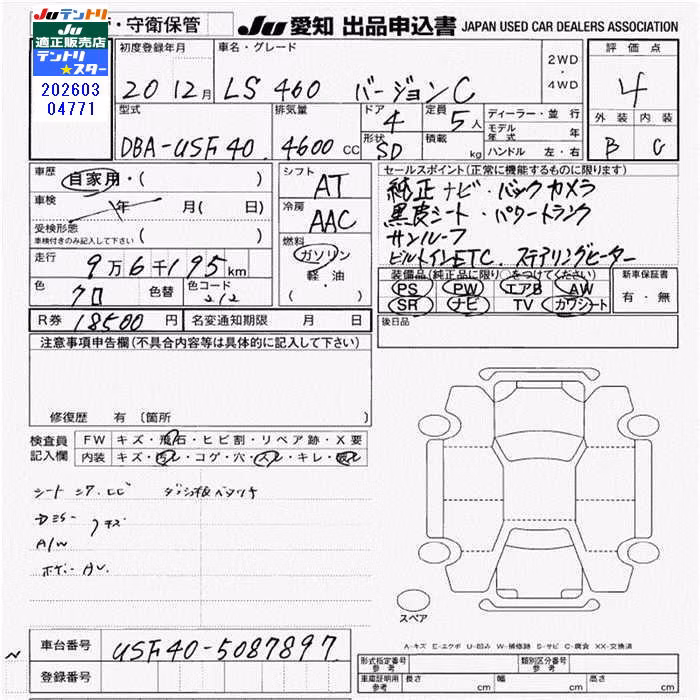 JUテントリ ・守衛保管 JU 愛知 出品申込書 JAPAN USED CAR DEALERS ASSOCIATION
適正販売店
テントリ★スター
202603
04771
初度登録年月 車名・グレード 2WD・4WD 評価点
20 12月 LS 460 バージョンC 4
型式 排気量 ドア 4 定員 5人 ディーラー・並行 外装 内装
DBA-USF40 4600CC 形状 SD 積載 kg モデル年式 年 B C
ハンドル 左・右
車歴 自家用・( ) シフト AT セールスポイント(正常に機能するものに限ります)
車検 年 月( 日) 冷房 AAC 純正ナビ・バックカメラ
受検形態 ( ) 黒皮シート・パワートランク
車検付きのみ記入して下さい 燃料 サンルーフ
走行 9万6千195km ガソリン ビルトインETC. ステアリングヒーター
軽・油
( )
装備品(純正品に限り○をつけてください) 新車保証書
色 クロ 色替 色コード 212 PS PW エアB AW 有・無
SR ナビ TV カワシート
R券 18500円 名変通知期限 月 日 後日品
注意事項申告欄(不具合内容等は具体的に記入して下さい)
修復歴 有〔箇所 〕
検査員記入欄 FW キズ・飛石・ヒビ割・リペア跡・X要
内装 キズ・汚レ・コゲ・穴・スレ・キレ・破レ
シート シワ.
A/W
スペア
A-キズ E-エクボ U-凹み W-補修跡 S-サビ C-腐食 XX-交換済
車台番号 USF40-5087897
登録番号
形式指定番号 参考 類別区分番号 参考
車庫証明用 参考 長さ cm 幅 cm 高さ cm